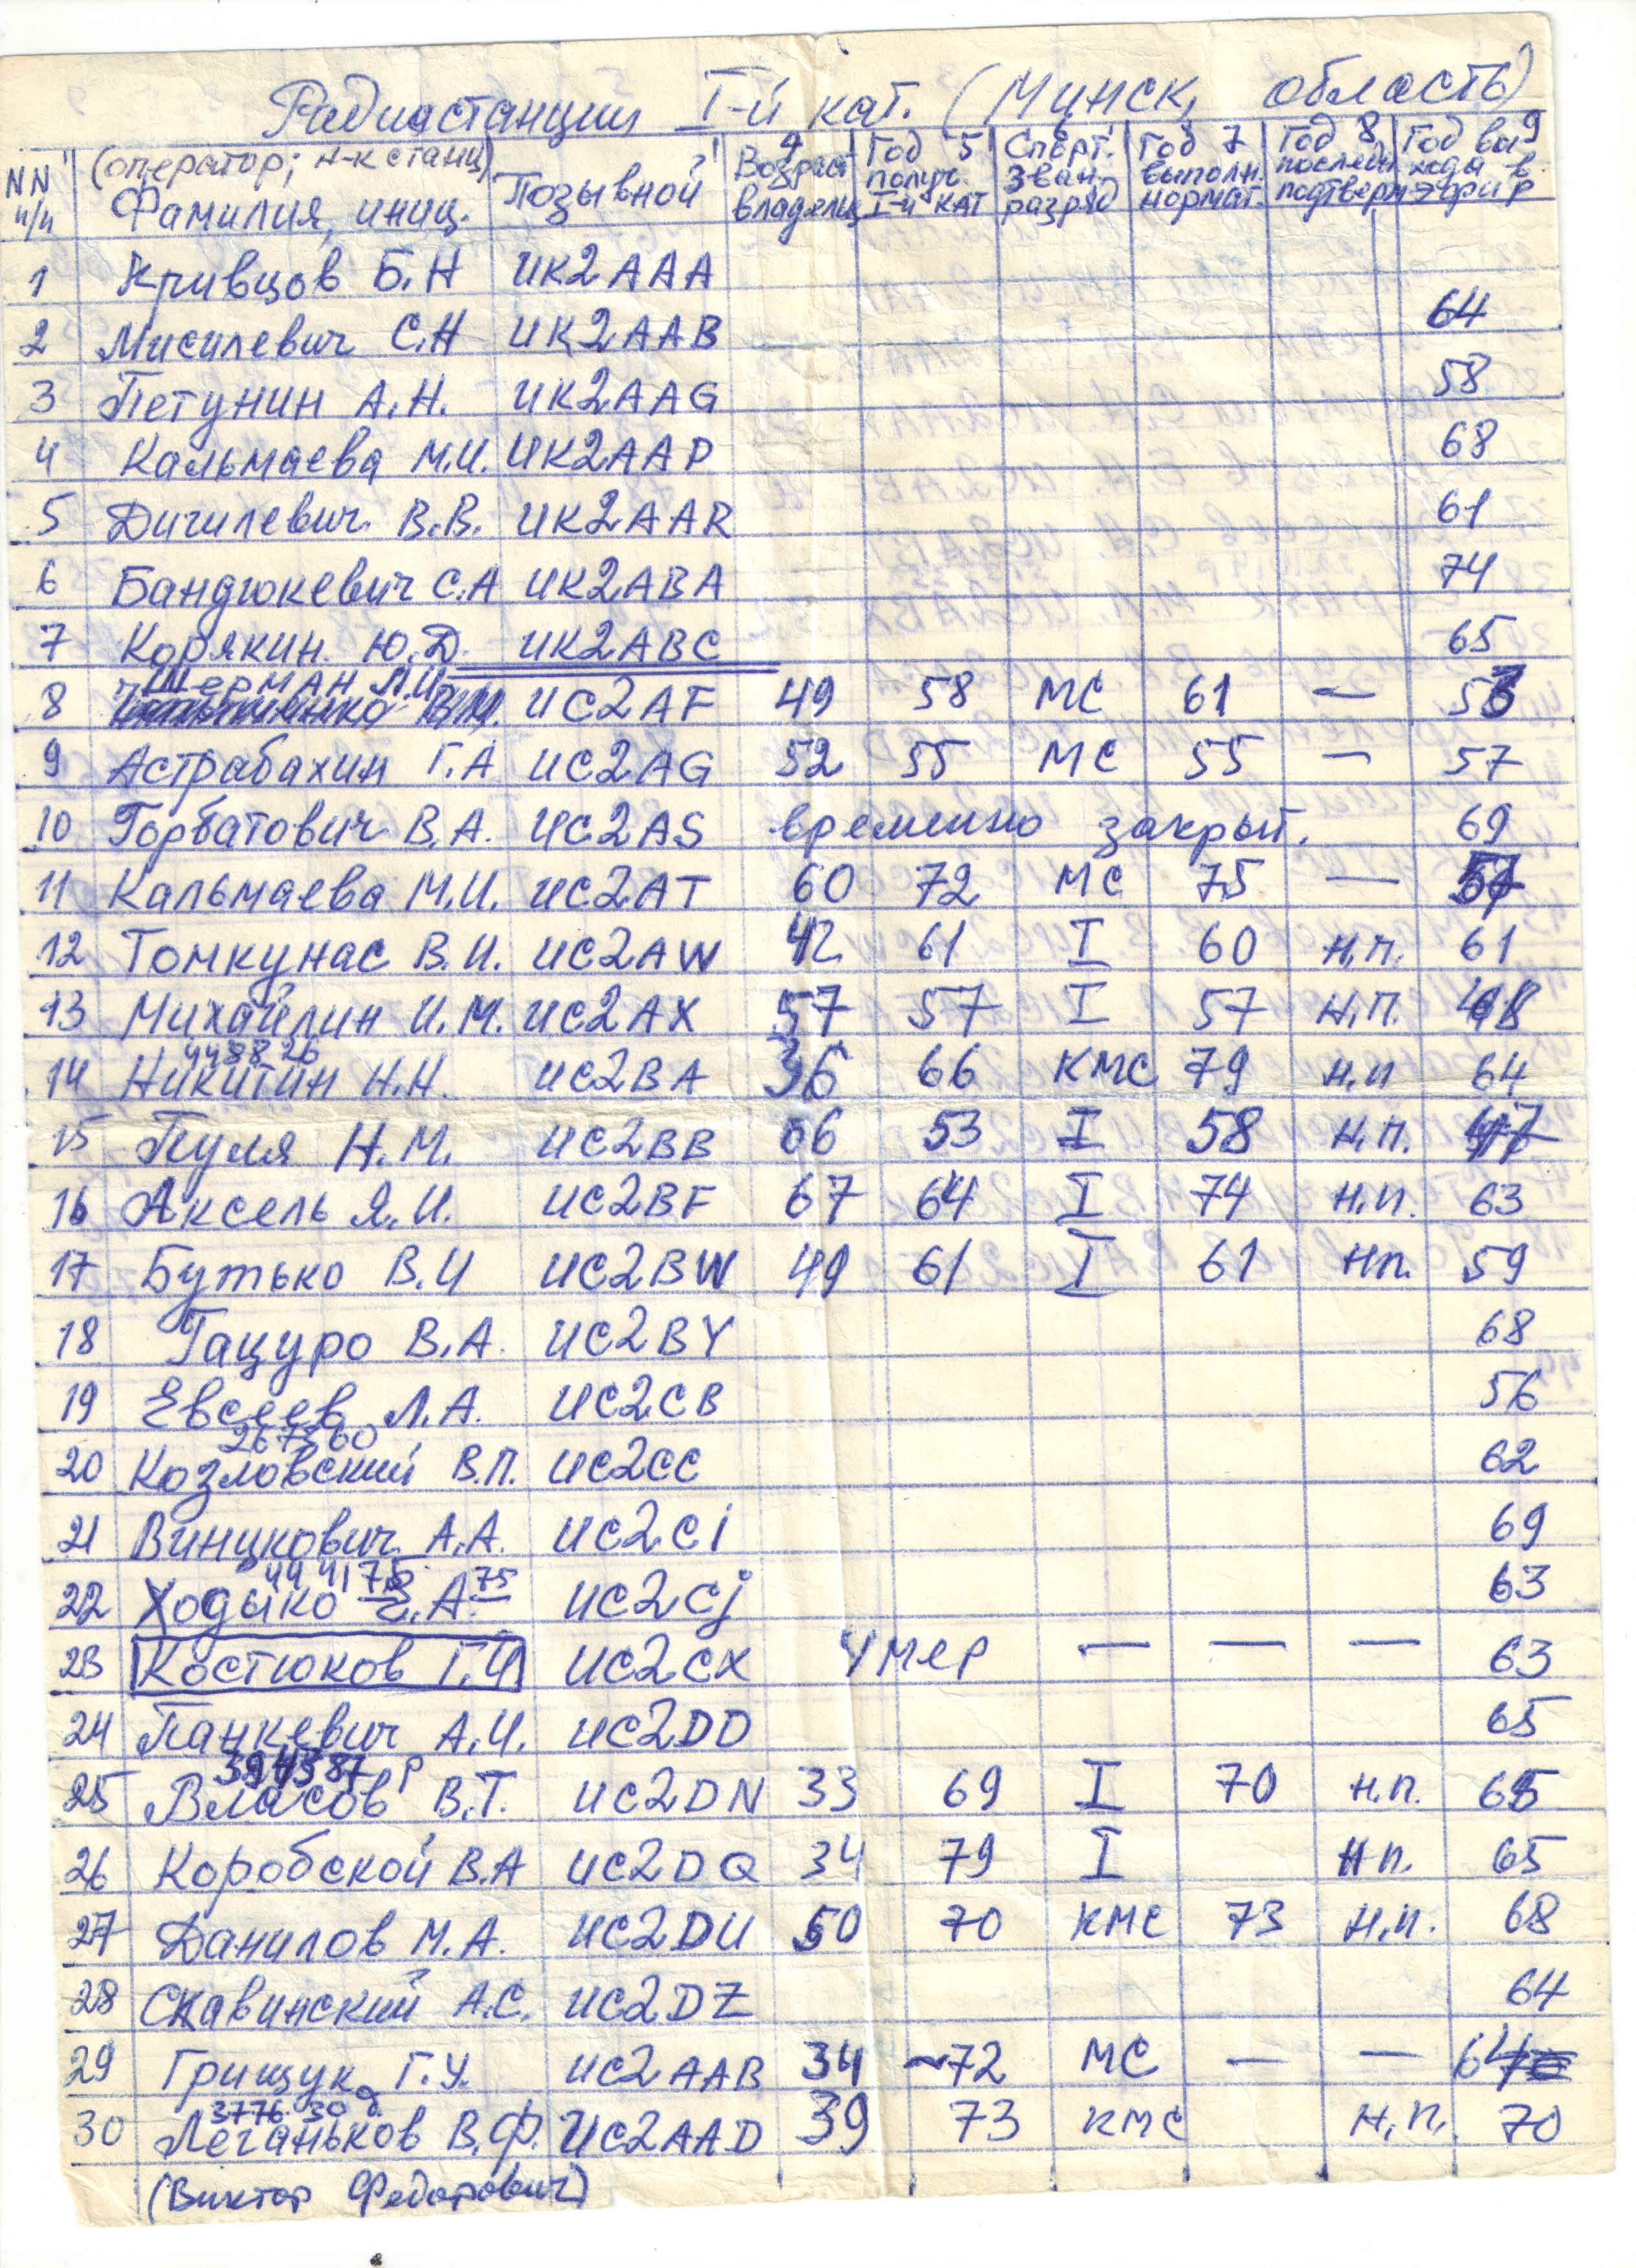 Радиостанции I-й кат. (Минск, область)
NN п/п (оператор; н-к станц) Фамилия, иниц. Позывной Возраст владельц Год получ. I-й кат Спорт. зван. разряд Год выполн. нормат. Год послед. подтверж Год выхода в эфир
1 Кривцов Б.Н UK2AAA
2 Мисилевич С.Н UK2AAB 64
3 Петунин А.Н. UK2AAG 58
4 Кальмаева М.И. UK2AAP 68
5 Дичилевич В.В. UK2AAR 61
6 Бандюкевич С.А UK2ABA 74
7 Корякин Ю.Д. UK2ABC 65
Шерман Л.И.
8 UC2AF 49 58 МС 61 —
9 Астрабахин Г.А UC2AG 52 55 МС 55 — 57
10 Горбатович В.А. UC2AS временно закрыт. 69
11 Кальмаева М.И. UC2AT 60 72 МС 75 —
12 Томкунас В.И. UC2AW 42 61 I 60 н.п. 61
13 Михайлин И.М. UC2AX 57 57 I 57 н.п. 48
448826
14 Никитин Н.Н. UC2BA 36 66 КМС 79 н.п 64
15 Пуля Н.М. UC2BB 66 53 I 58 н.п. 47
16 Аксель Я.И. UC2BF 67 64 I 74 н.п. 63
17 Бутько В.И UC2BW 49 61 I 61 нп. 59
18 Гацуро В.А. UC2BY 68
19 Евсеев Л.А. UC2CB 56
267560
20 Козловский В.П. UC2CC 62
21 Винцкович А.А. UC2Ci 69
22 Ходыко UC2Cj 63
23 Костюков Г.И UC2CX умер — — — 63
24 Панкевич А.И. UC2DD 65
25 Власов В.Т. UC2DN 33 69 I 70 н.п. 65
26 Коробской В.А UC2DQ 34 79 I н п. 65
27 Данилов М.А. UC2DU 50 70 КМС 73 н.п. 68
28 Скавинский А.С. UC2DZ 64
29 Грищук Г.У. UC2AAB 34 ~72 МС — — 64
3776 30 д.
30 Леганьков В.Ф. UC2AAD 39 73 КМС н.п. 70
(Виктор Федорович)